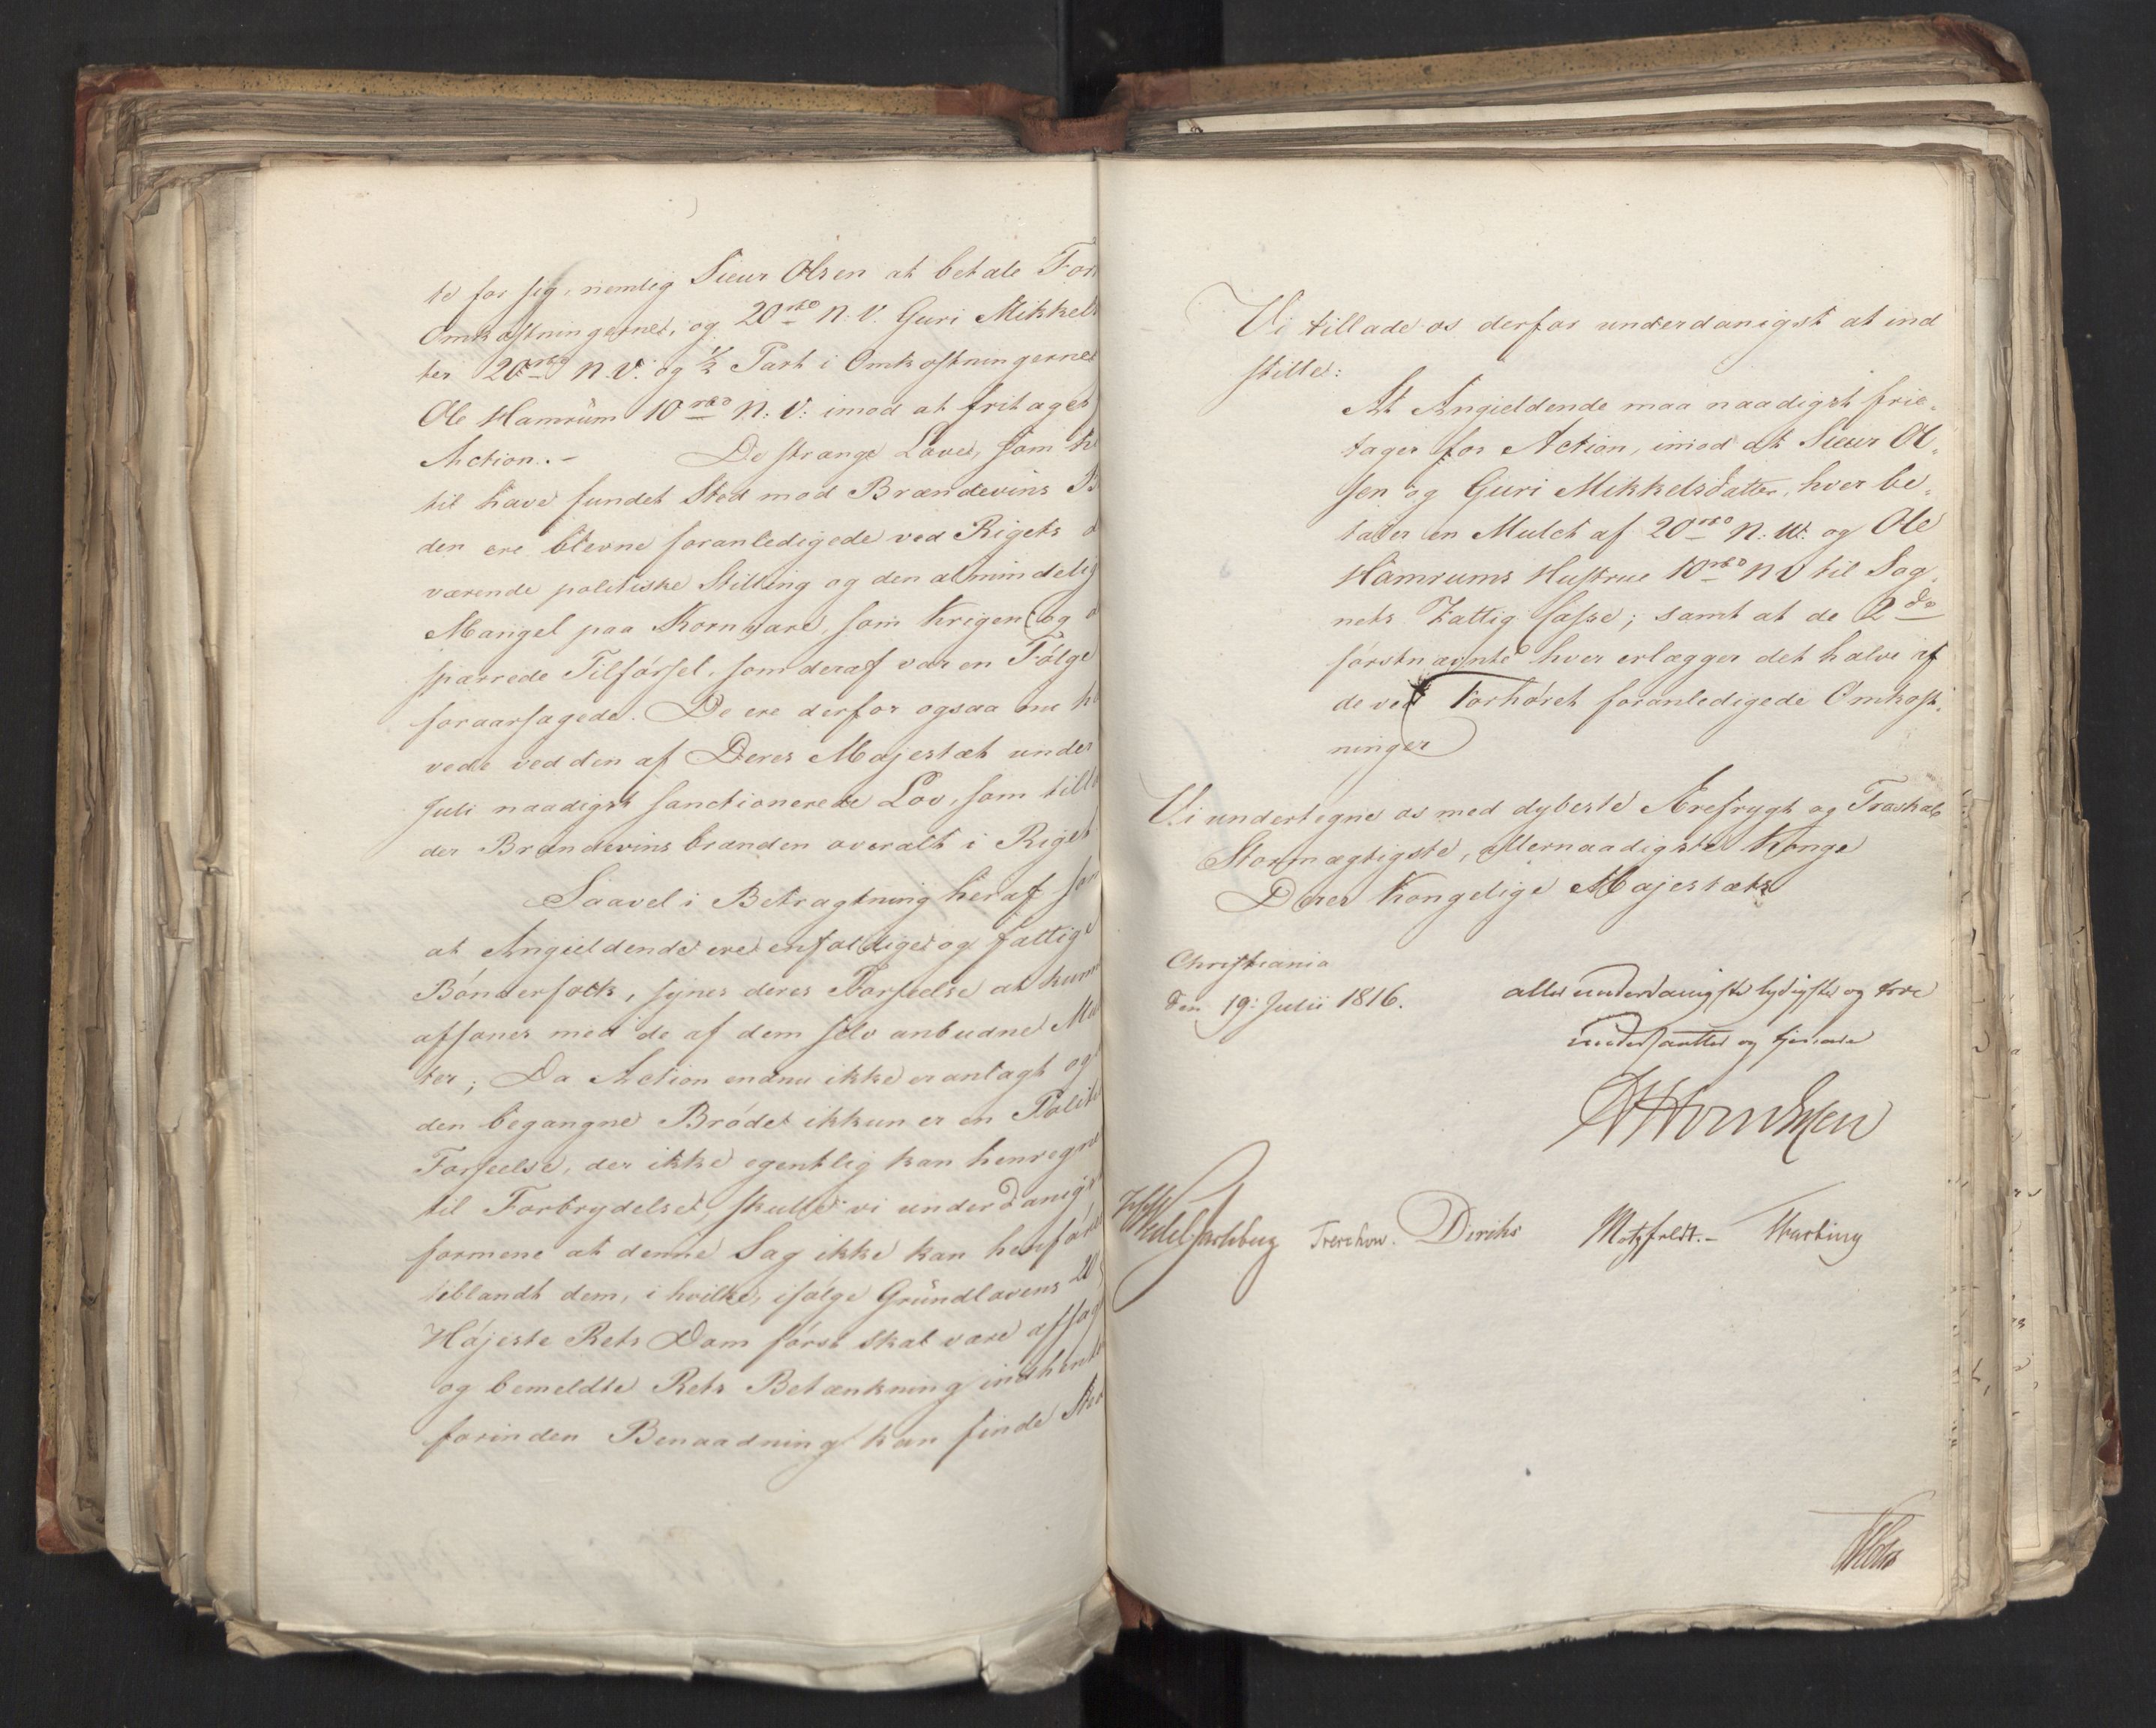 te for sig, nemlig Siuur Olsen at betale For
Omkostningerne, og 20 rbd N. V. Guri Mikkels
ter 20 rbd N. V. og ½ Part i Omkostningerne
Ole Hamrüm 10 rbd N: V: imod at fritages
Action. - De strange Love, som
til have fundet Sted mod Brændevins B
den ere blevne foranledigede ved Rigets
værende politiske Stilling og den almindelig
Mangel paa Kornvare, som Krigen og
sparrede Tilførsel, som deraf var en Følge
foraarsagede. De ere derfor ogsaa nu hæ
vede ved den af Deres Majestæt under
Juli naadigst sanctionerede Lov, som tilla
der Brændevinsbranden overalt i Riget
Saavel i Betragtning heraf som
at Angieldende ere enfoldige og fattige
Bønderfolk, synes deres Forseelse at kunn
afsones med de af dem selv anbudne Mul
ter; Da Action endnu ikke er anlagt og
den begangne Brøde ikkun er en Politi
Forseelse, der ikke egentlig kan henregne
til Forbrydelser, skulle vi underdanigst
formene at denne Sag ikke kan henføre
iblandt dem, i hvilke, ifølge Grundlovens 20
Højeste Rets Dom først skal være afsag
og bemeldte Rets Betænkning indhente
forinden Benaadning kan finde Sted
Vi tillade os derfor underdanigst at ind
stille:
At Angieldende maa naadigst frie-
tages for Action, imod at Siuur Ol-
sen og Guri Mikkelsdatter, hver be-
taler en Mulct af 20 rbd N. V. og Ole
Hamrums Hustrue 10 rbd N V til Sog-
nets Fattig Casse; samt at de 2de
førstnævnte hver erlægger det halve af
de ved Forhøret foranledigede Omkost-
ninger
Vi undertegne os med dybeste Ærefrygt og Troskab
Stormægtigste, Allernaadigste Konge
Deres Kongelige Majestæts
Christiania
den 19: Julii 1816.
allerunderdanigste lydigste og troe
undersaatter og tjenere
Wedel Jarlsberg Treschow. Diriks Motzfeldt.-